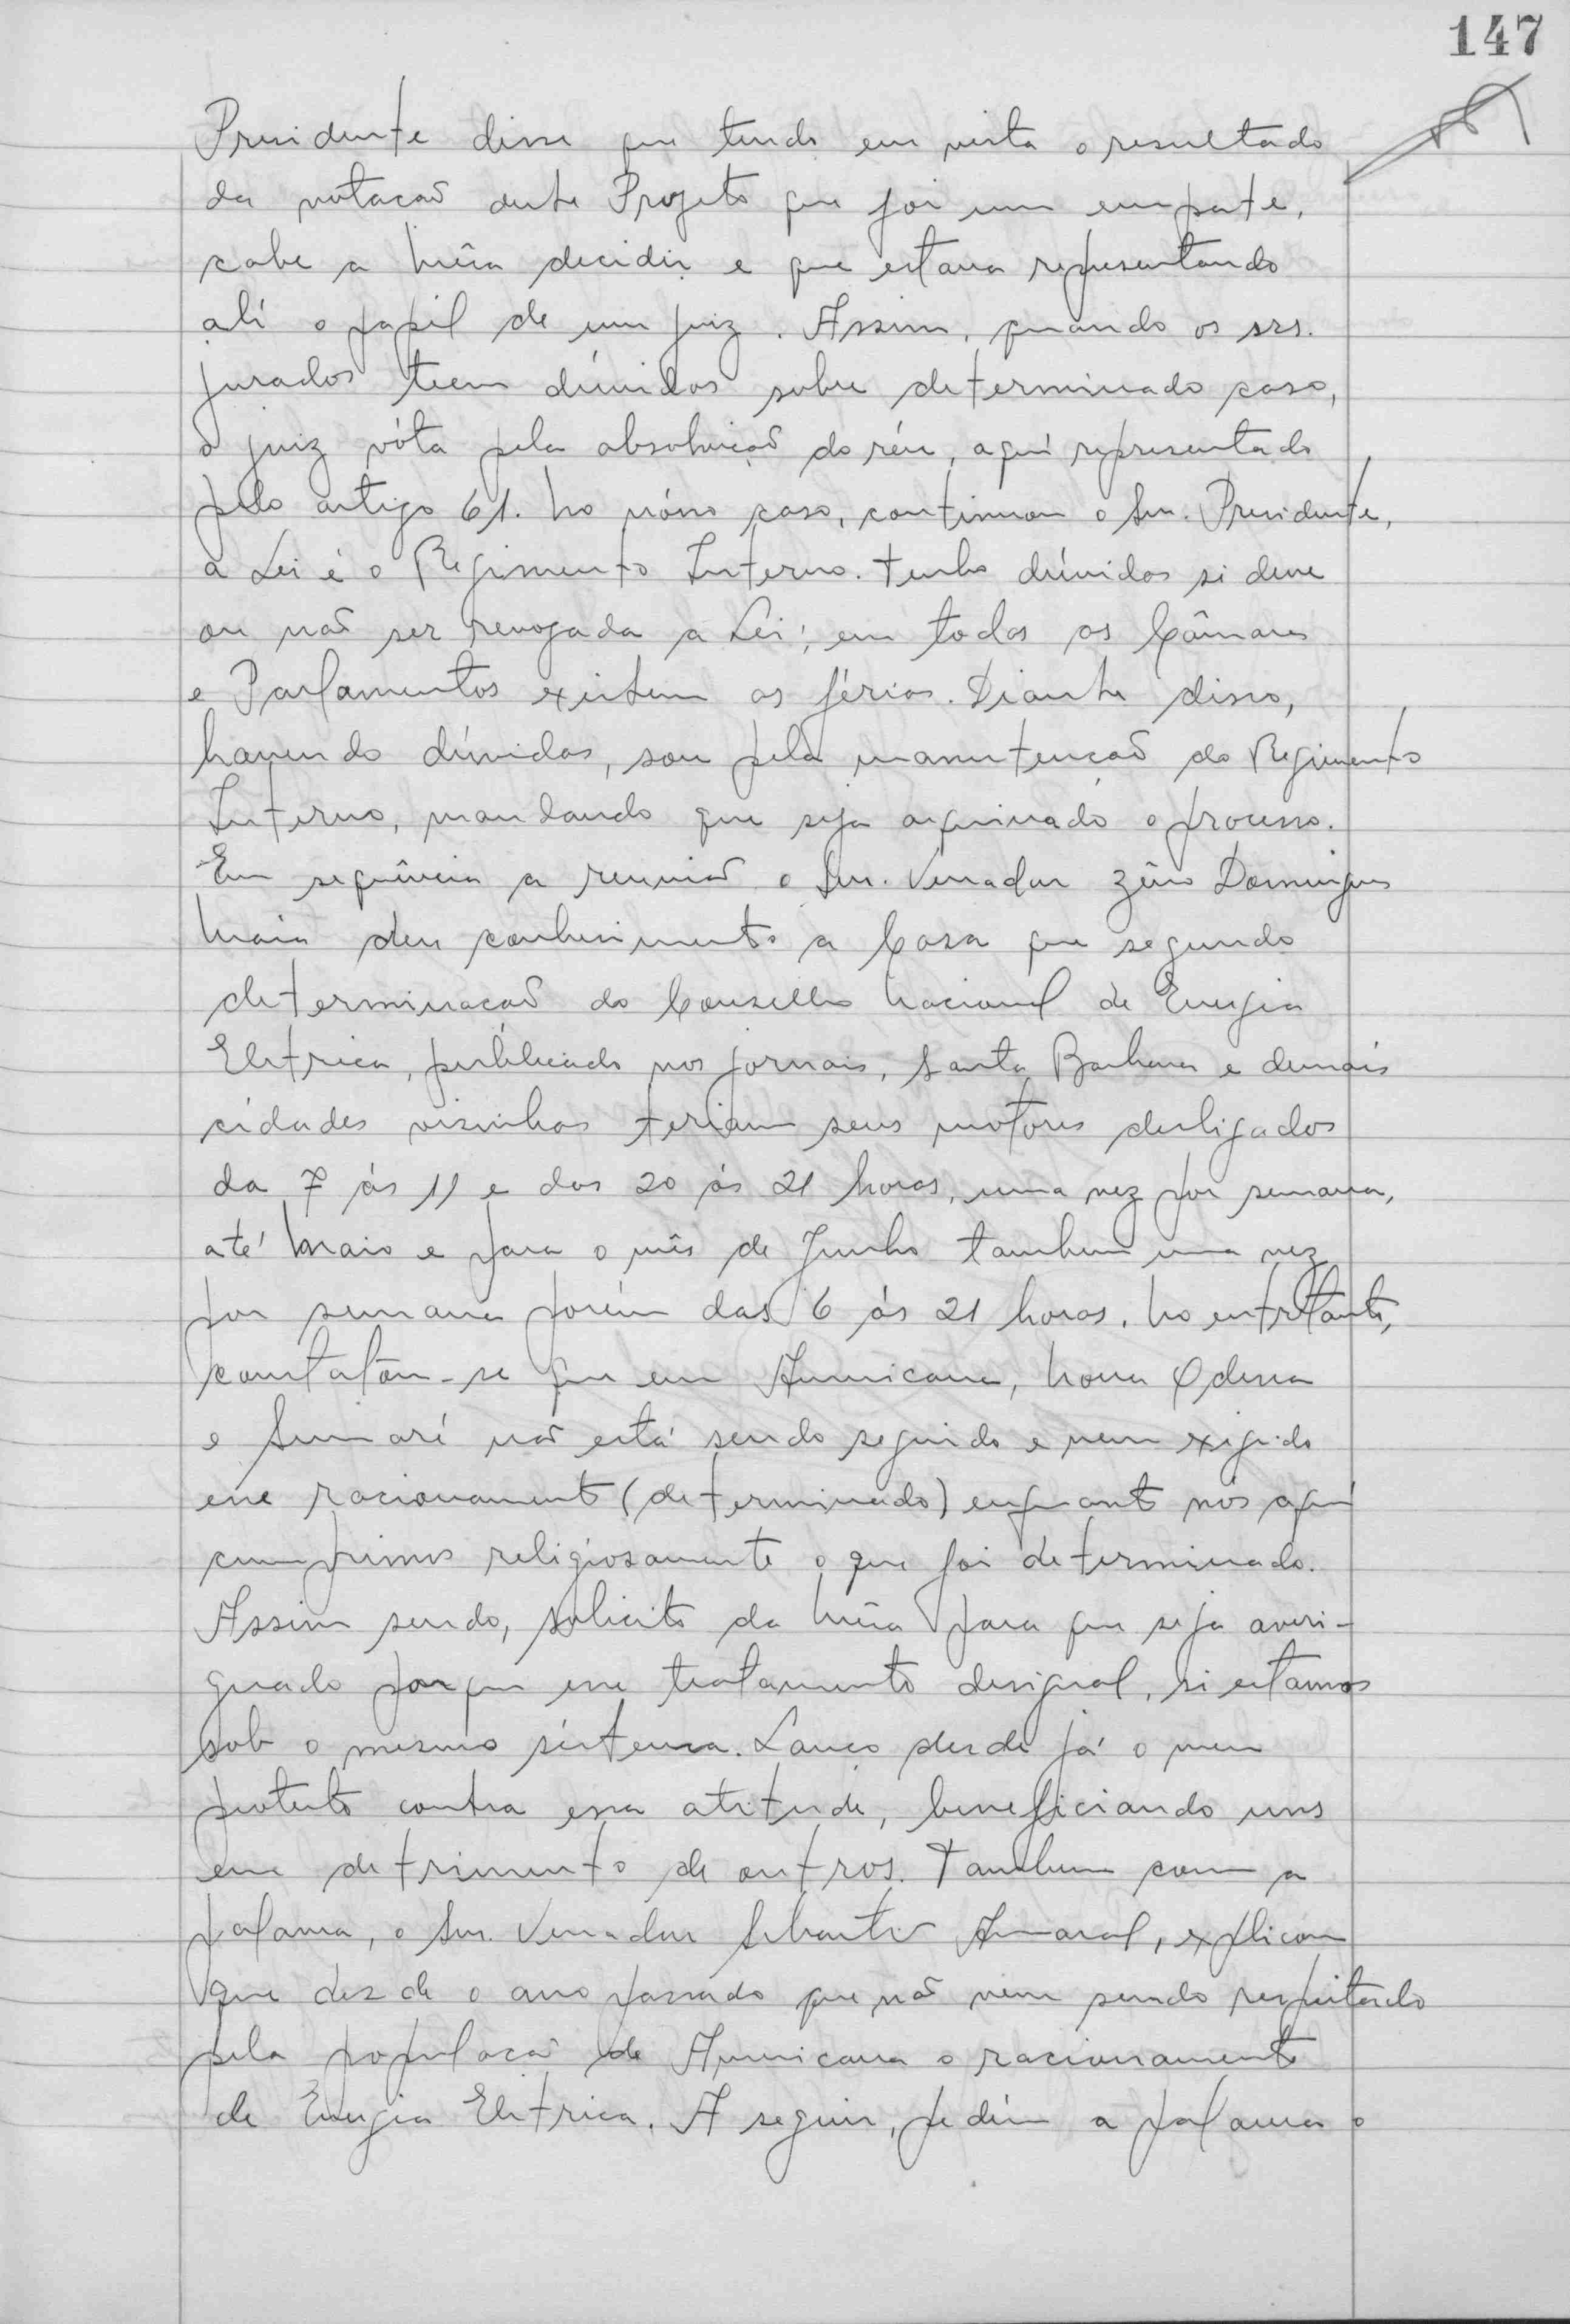 147
Presidente disse que tendo em vista o resultado
da votacaõ deste Projeto que foi um empate,
cabe a Mêsa decidir e que estava representando
alí o papel de um juiz. Assim, quando os srs.
jurados teem dúvidas sobre determinado caso,
o juiz vóta pela absolviçaõ do réu, aquí representado
pelo artigo 61. No nósso caso, continuou o Snr. Presidente,
a Lei é o Regimento Interno. Tenho dúvidas si deve
ou naõ ser revogada a Lei; em todas as Câmaras
e Parlamentos existem as férias. Diante disso,
havendo dúvidas, sou pela manutençaõ do Regimento
Interno, mandando que seja arquivado o processo.
Em sequência a reuniaõ o Snr. Vereador Zêno Domingues
Maia deu conhecimento a Casa que segundo
determinacaõ do Conselho Nacional de Energia
Eletrica, públicado nos jornais, Santa Barbara e demais
cidades visinhas teriam seus motores desligados
da 7 ás 11 e das 20 ás 21 horas, uma vez por semana,
até Maio e para o mês de Junho tambem uma vez
por semana porém das 6 ás 21 horas. No entretanto,
constatou-se que em Americana, Nova Odessa
e Sumaré naõ está sendo seguido e nem exigido
esse racionamento (determinado) enquanto nós aquí
cumprimos religiosamente o que foi determinado.
Assim sendo, solicito da Mêsa para que seja averi-
guado porque esse tratamento desigual, si estamos
sob o mesmo sistema. Lanço desde já o meu
protesto contra essa atitude, beneficiando uns
em detrimento de outros. Tambem com a
palavra, o Snr. Vereador Sebastiaõ Amaral, explicou
que desde o ano passado que naõ vem sendo respeitado
pela populacaõ de Americana o racionamento
de Energia Eletrica. A seguir, pediu a palavra o